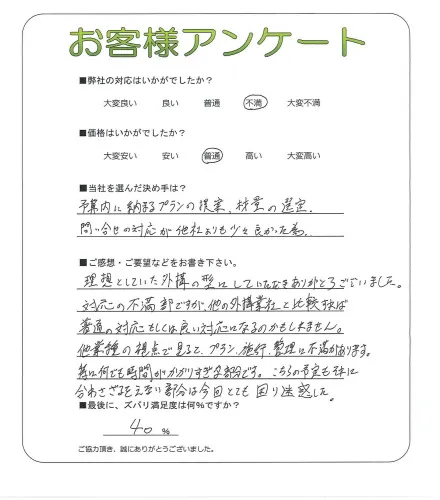 お客様アンケート
■弊社の対応はいかがでしたか？
大変良い 良い 普通 不満 大変不満
■価格はいかがでしたか？
大変安い 安い 普通 高い 大変高い
■当社を選んだ決め手は？
予算内に納まるプランの提案、材量の選定、
問い合せの対応が他社よりも少々良かった為
■ご感想・ご要望などをお書き下さい。
理想としていた外構の型にしていただきありがとうございました。
対応の不満部ですが、他の外構業社と比較すれば
普通の対応もしくは良い対応になるのかもしれません。
他業種の視点で見ると、プラン、施行、整理に不満があります。
特に何でも時間がかかりすぎる部分です。こちらの予定も
合わさざるをえない部分は今回とても困り迷惑した。
■最後に、ズバリ満足度は何％ですか？
40 ％
ご協力頂き、誠にありがとうございました。